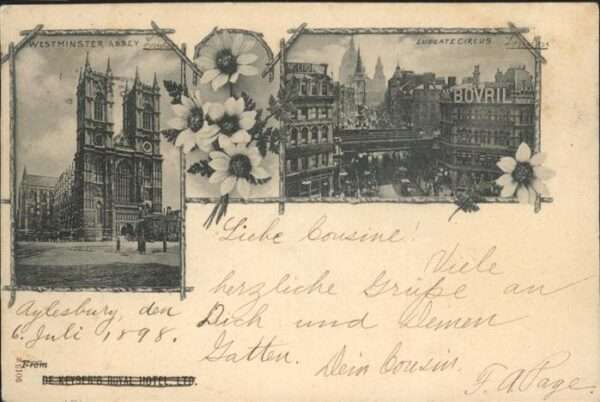 WESTMINSTER ABBEY London
LUDGATE CIRCUS London
BOVRIL
Liebe Cousine!
Viele
herzliche Grüße an
Dich und Deinen
Gatten. Dein Cousin
F. A. Page.
Aylesbury, den
6. Juli 1898.
From
DE KEYSER'S ROYAL HOTEL, LTD.